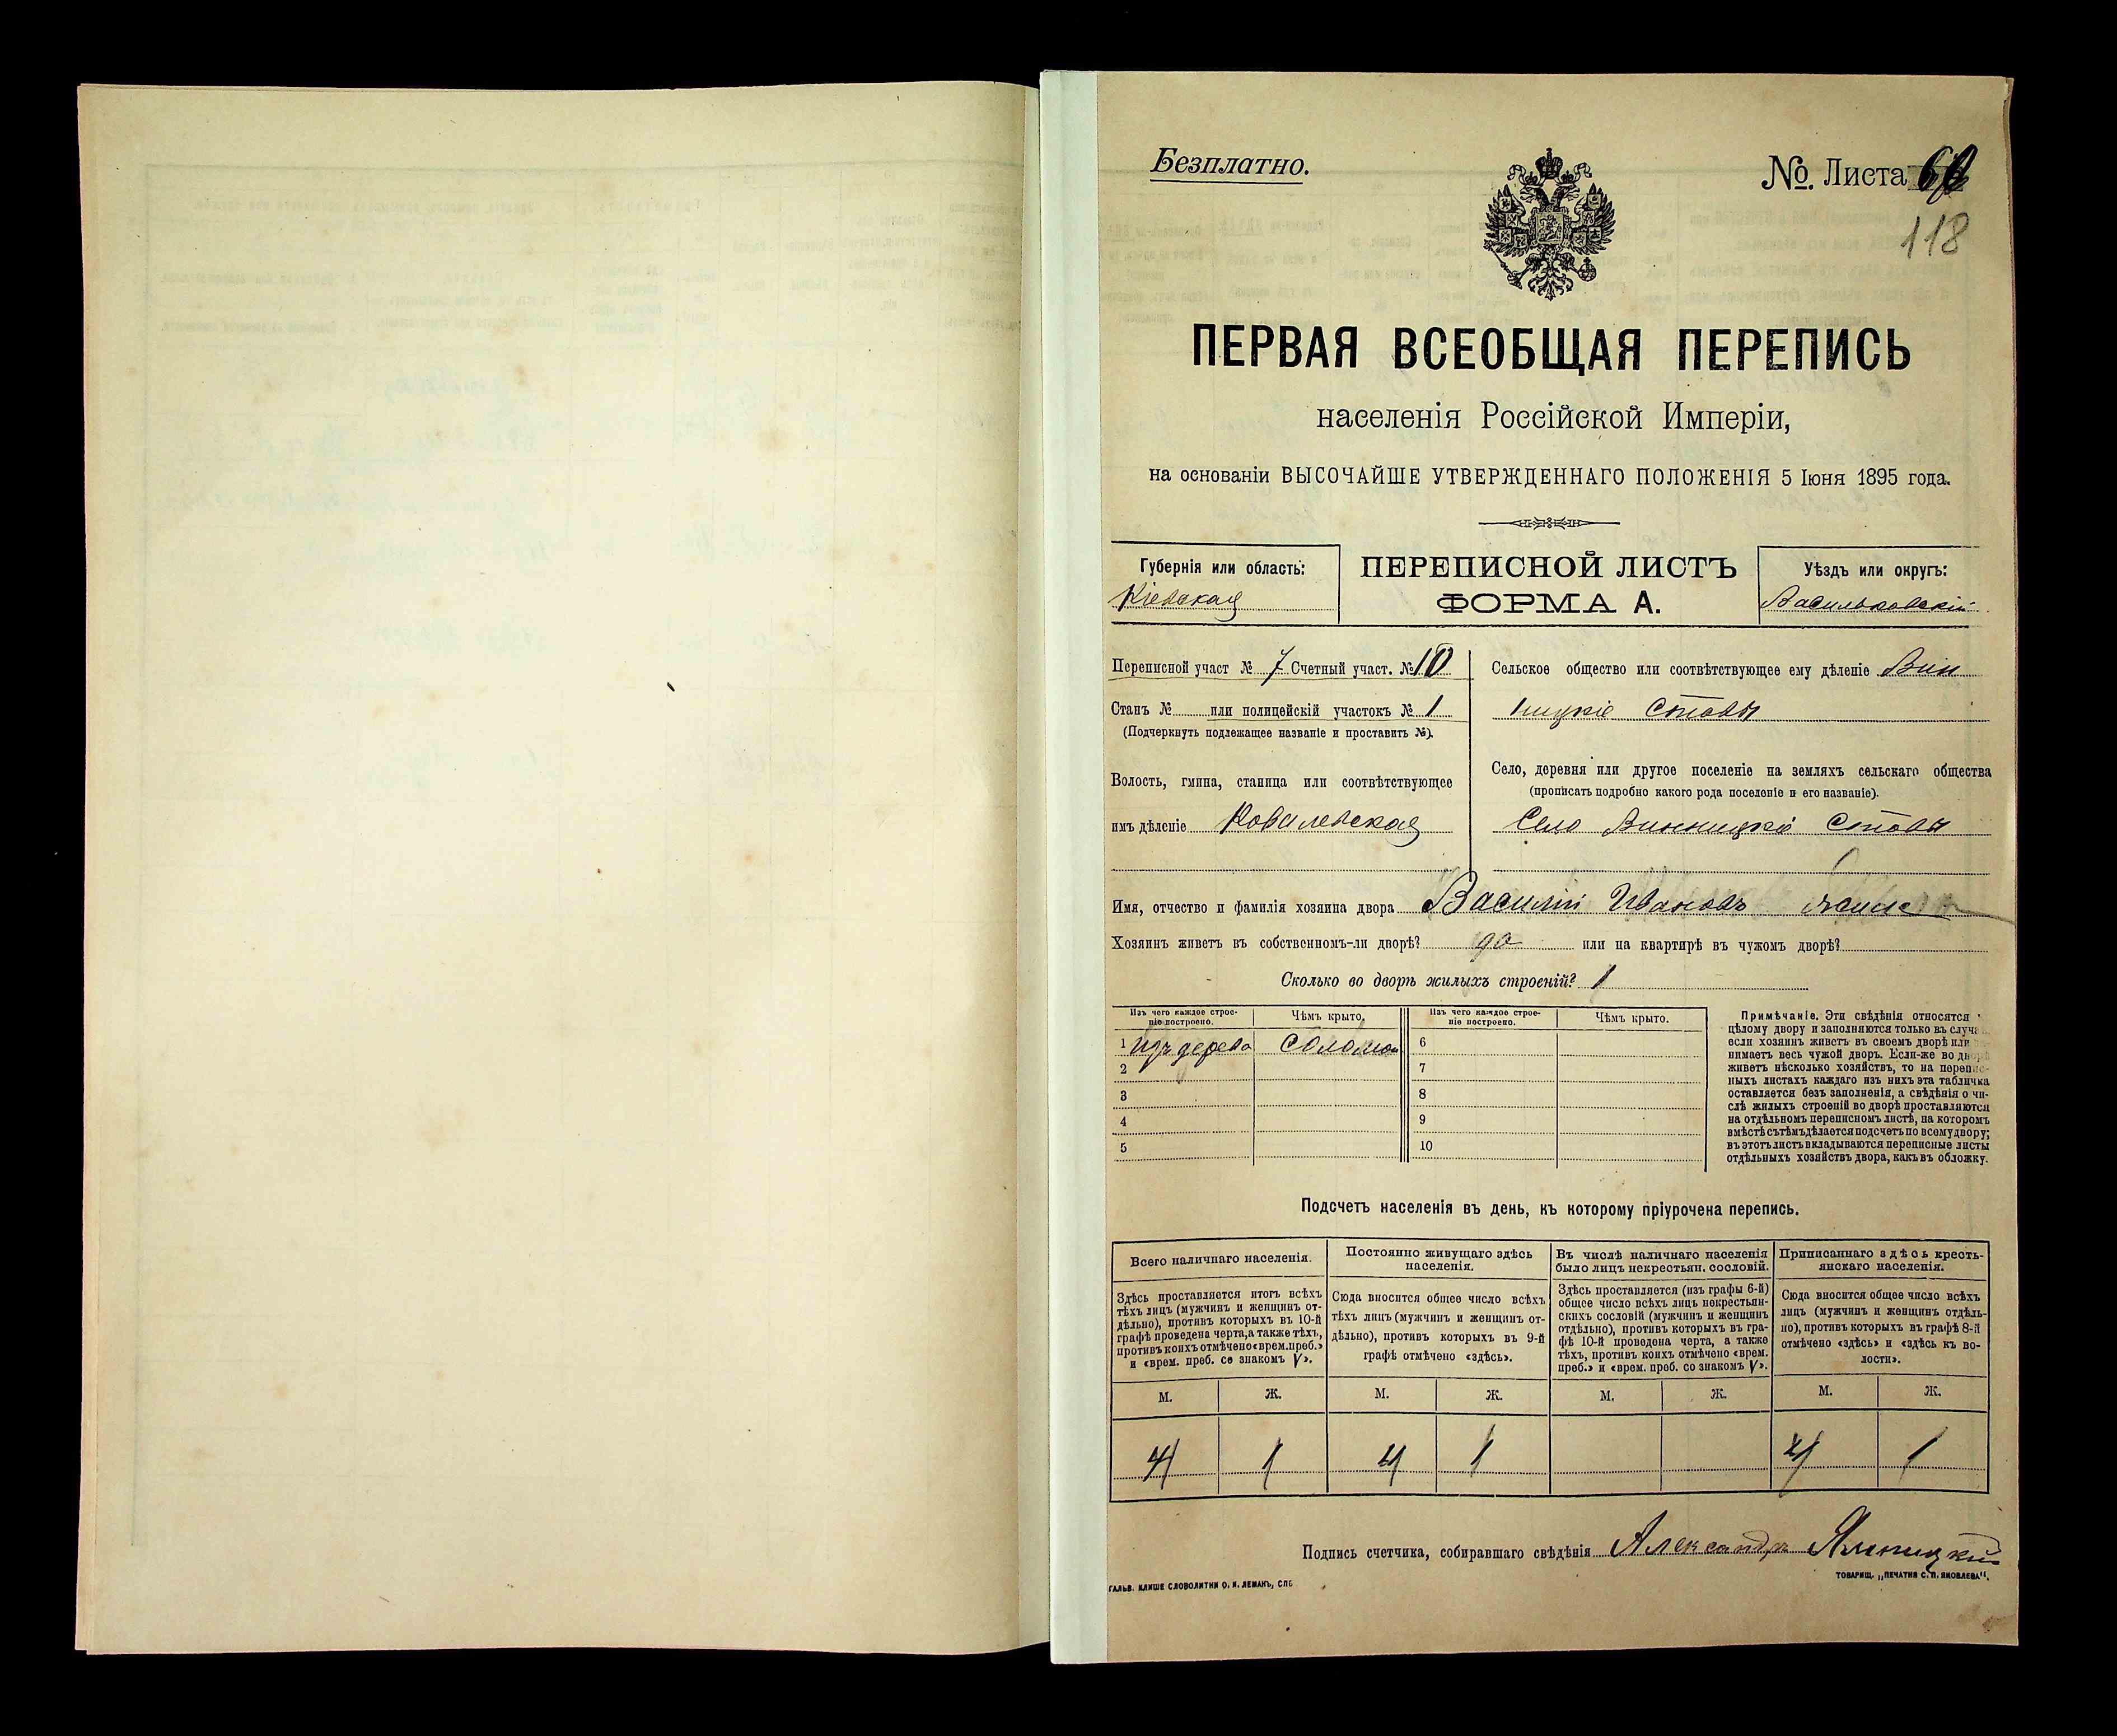 Безплатно.
№. Листа
118
ПЕРВАЯ ВСЕОБЩАЯ ПЕРЕПИСЬ
населенія Россійской Имперіи,
на основаніи ВЫСОЧАЙШЕ УТВЕРЖДЕННАГО ПОЛОЖЕНІЯ 5 Іюня 1895 года.
Губернія или область:
Кіевская
ПЕРЕПИСНОЙ ЛИСТЪ
ФОРМА А.
Уѣздъ или округъ:
Васильковскій
Переписной участ № 7 Счетный участ. № 10
Станъ № или полицейскій участокъ № 1
(Подчеркнуть подлежащее названіе и проставить №).
Волость, гмина, станица или соотвѣтствующее
имъ дѣленіе Ковалевская
Сельское общество или соотвѣтствующее ему дѣленіе Вин
ницкіе Ставы
Село, деревня или другое поселеніе на земляхъ сельскаго общества
(прописать подробно какого рода поселеніе и его названіе).
Село Винницкіе Ставы
Имя, отчество и фамилія хозяина двора Василій Ивановъ
Хозяинъ живетъ въ собственномъ-ли дворѣ? да или на квартирѣ въ чужомъ дворѣ?
Сколько во дворѣ жилыхъ строеній? 1
Изъ чего каждое строе-
ніе построено.
Чѣмъ крыто.
Изъ чего каждое строе-
ніе построено.
Чѣмъ крыто.
1 Изъ дерева Соломой 6
2 7
3 8
4 9
5 10
Примѣчаніе. Эти свѣдѣнія относятся
цѣлому двору и заполняются только въ случа
если хозяинъ живетъ въ своемъ дворѣ или
нимаетъ весь чужой дворъ. Если-же во дворѣ
живетъ нѣсколько хозяйствъ, то на перепис-
ныхъ листахъ каждаго изъ нихъ эта табличка
оставляется безъ заполненія, а свѣдѣнія о чи-
слѣ жилыхъ строеній во дворѣ проставляются
на отдѣльномъ переписномъ листѣ, на которомъ
вмѣстѣ съ тѣмъ дѣлается подсчетъ по всему двору;
въ этотъ листъ вкладываются переписные листы
отдѣльныхъ хозяйствъ двора, какъ въ обложку.
Подсчетъ населенія въ день, къ которому пріурочена перепись.
Всего наличнаго населенія.
Здѣсь проставляется итогъ всѣхъ
тѣхъ лицъ (мужчинъ и женщинъ от-
дѣльно), противъ которыхъ въ 10-й
графѣ проведена черта, а также тѣхъ,
противъ коихъ отмѣчено «врем. преб.»
и «врем. преб. со знакомъ V».
Постоянно живущаго здѣсь
населенія.
Сюда вносится общее число всѣхъ
тѣхъ лицъ (мужчинъ и женщинъ от-
дѣльно), противъ которыхъ въ 9-й
графѣ отмѣчено «здѣсь».
Въ числѣ наличнаго населенія
было лицъ некрестьян. сословій.
Здѣсь проставляется (изъ графы 6-й)
общее число всѣхъ лицъ некрестьян-
скихъ сословій (мужчинъ и женщинъ
отдѣльно), противъ которыхъ въ гра-
фѣ 10-й проведена черта, а также
тѣхъ, противъ коихъ отмѣчено «врем.
преб.» и «врем. преб. со знакомъ V».
Приписаннаго здѣсь кресть-
янскаго населенія.
Сюда вносится общее число всѣхъ
лицъ (мужчинъ и женщинъ отдѣль-
но), противъ которыхъ въ графѣ 8-й
отмѣчено «здѣсь» и «здѣсь къ во-
лости».
М. Ж. М. Ж. М. Ж. М. Ж.
4 1 4 1 4 1
Подпись счетчика, собиравшаго свѣдѣнія Александръ
ГАЛЬВ. КЛИШЕ СЛОВОЛИТНИ О. И. ЛЕМАНЪ, СПБ
ТОВАРИЩ. „ПЕЧАТНЯ С. П. ЯКОВЛЕВА“.